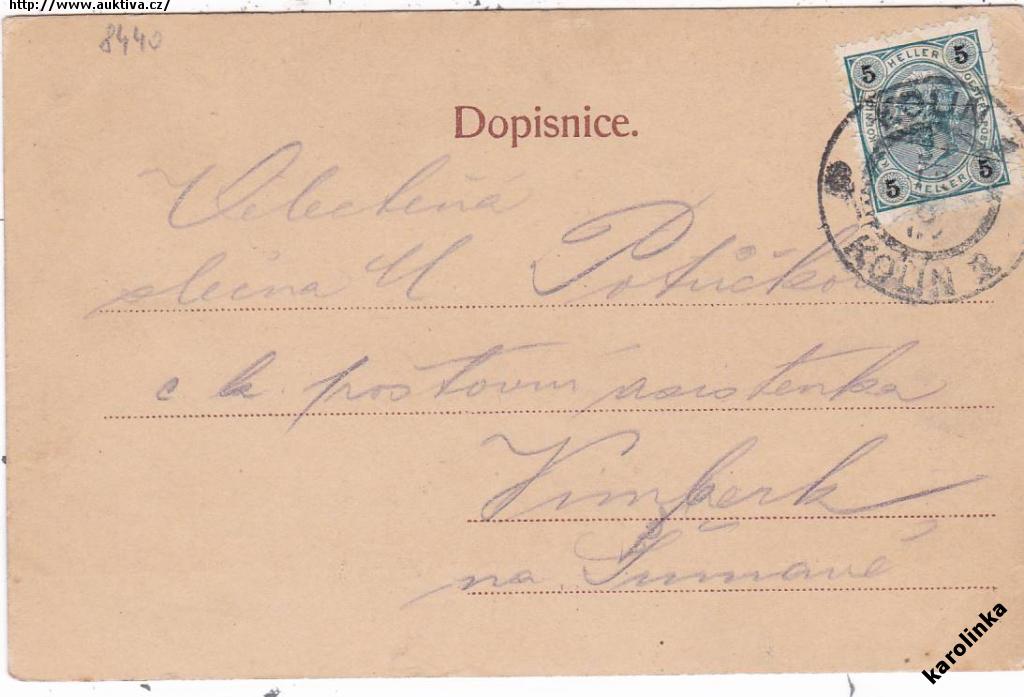 http://www.auktiva.cz/
8440
Dopisnice.
5 HELLER 5
5 HELLER 5
KOLIN
KOLIN 2
Velectěná
slečna M Potůčkova
c k poštovní asistenka
Vimperk
na Šumavě
karolinka